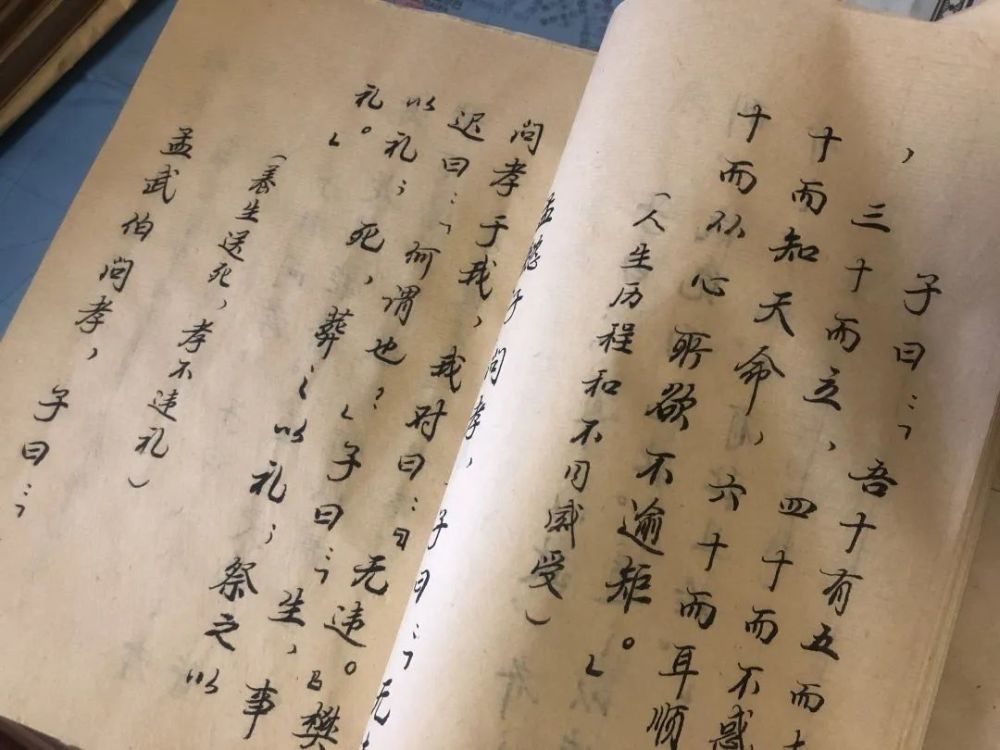 子曰：「吾十有五而
，三十而立，四十而不惑
十而知天命，六十而耳顺
十而从心所欲不逾矩。」
（人生历程和不同感受）
孟懿子问孝，子曰：「无
问孝于我，我对曰：『无违。』樊
迟曰：「何谓也？」子曰：「生，事
以礼；死，葬之以礼；祭之以
礼。」
（养生送死，孝不违礼）
孟武伯问孝，子曰：「